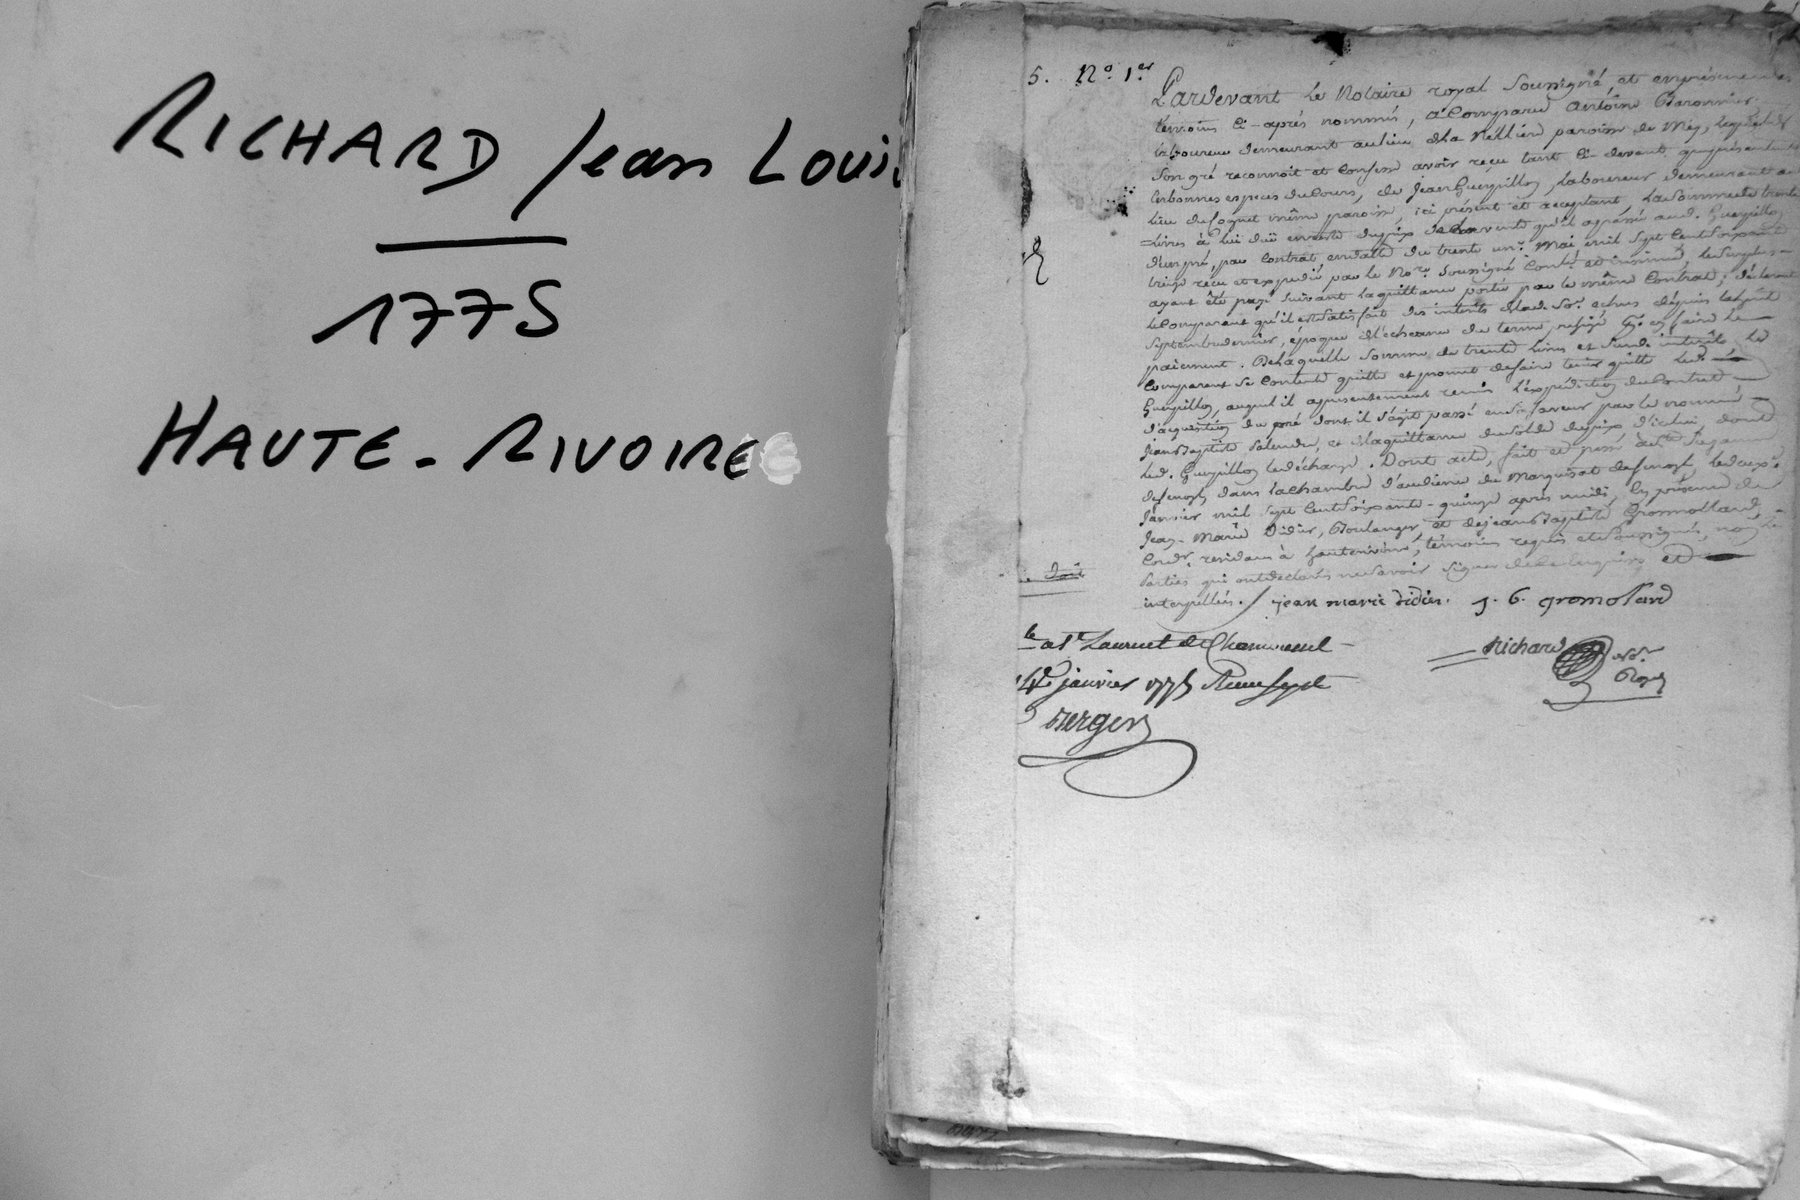 RICHARD Jean Louis
1775
HAUTE-RIVOIRE
5. No. 1er
Pardevant le Notaire royal soussigné, et en présence des
temoins ci-après nommés, a comparu antoine
laboureur demeurant au lieu de la paroisse de Mey, lequel de
son gré reconnoit et confesse avoir reçu tant ci-devant, que présentement
en bonnes especes du cours, de Jean Guerpillon, laboureur demeurant au
lieu de même paroisse, ici présent et acceptant, la somme de trente
livres à lui düe en reste du prix de la vente qu'il a passée aud. Guerpillon
d'un pré, par contrat en datte du trente un.e Mai mil sept cent soixante
treize reçu et expedié par le No.re soussigné Contlé et insinué, le surplus
ayant été payé suivant la quittance portée par le même Contrat; déclarant
le comparant qu'il est satisfait des interêts de lad. So.e echus depuis le
septembre dernier, époque de l'écheance du terme, pour en faire le
paiement. De laquelle somme de trente livres et susd. interêts, le
comparant se contente quitte et promet de faire tenir quitte led.
Guerpillon, auquel il a presentement remis l'expédition du Contrat
d'acquisition du pré dont il s'agit passé en sa faveur par le nommé
Jean Baptiste et la quittance du solde du prix d'icelui dont
led. Guerpillon le décharge. Dont acte, fait et passé
dans la chambre d'audience du Marquisat de le deux.e
Janvier mil sept cent soixante-quinze après midi, en présence de
Jean-Marie Didier, Boulanger, et de Jean Baptiste Gromolland,
Cord.r residans à hauterivoire, témoins requis et soussignés, non les
parties qui ont declaré ne savoir signer de ce enquises et
interpellées. jean marie didier. J. B. gromoland
le a St Laurent de Chamousset
14e janvier 1775 Reçu sept s
Berger
Richard No.re Royal